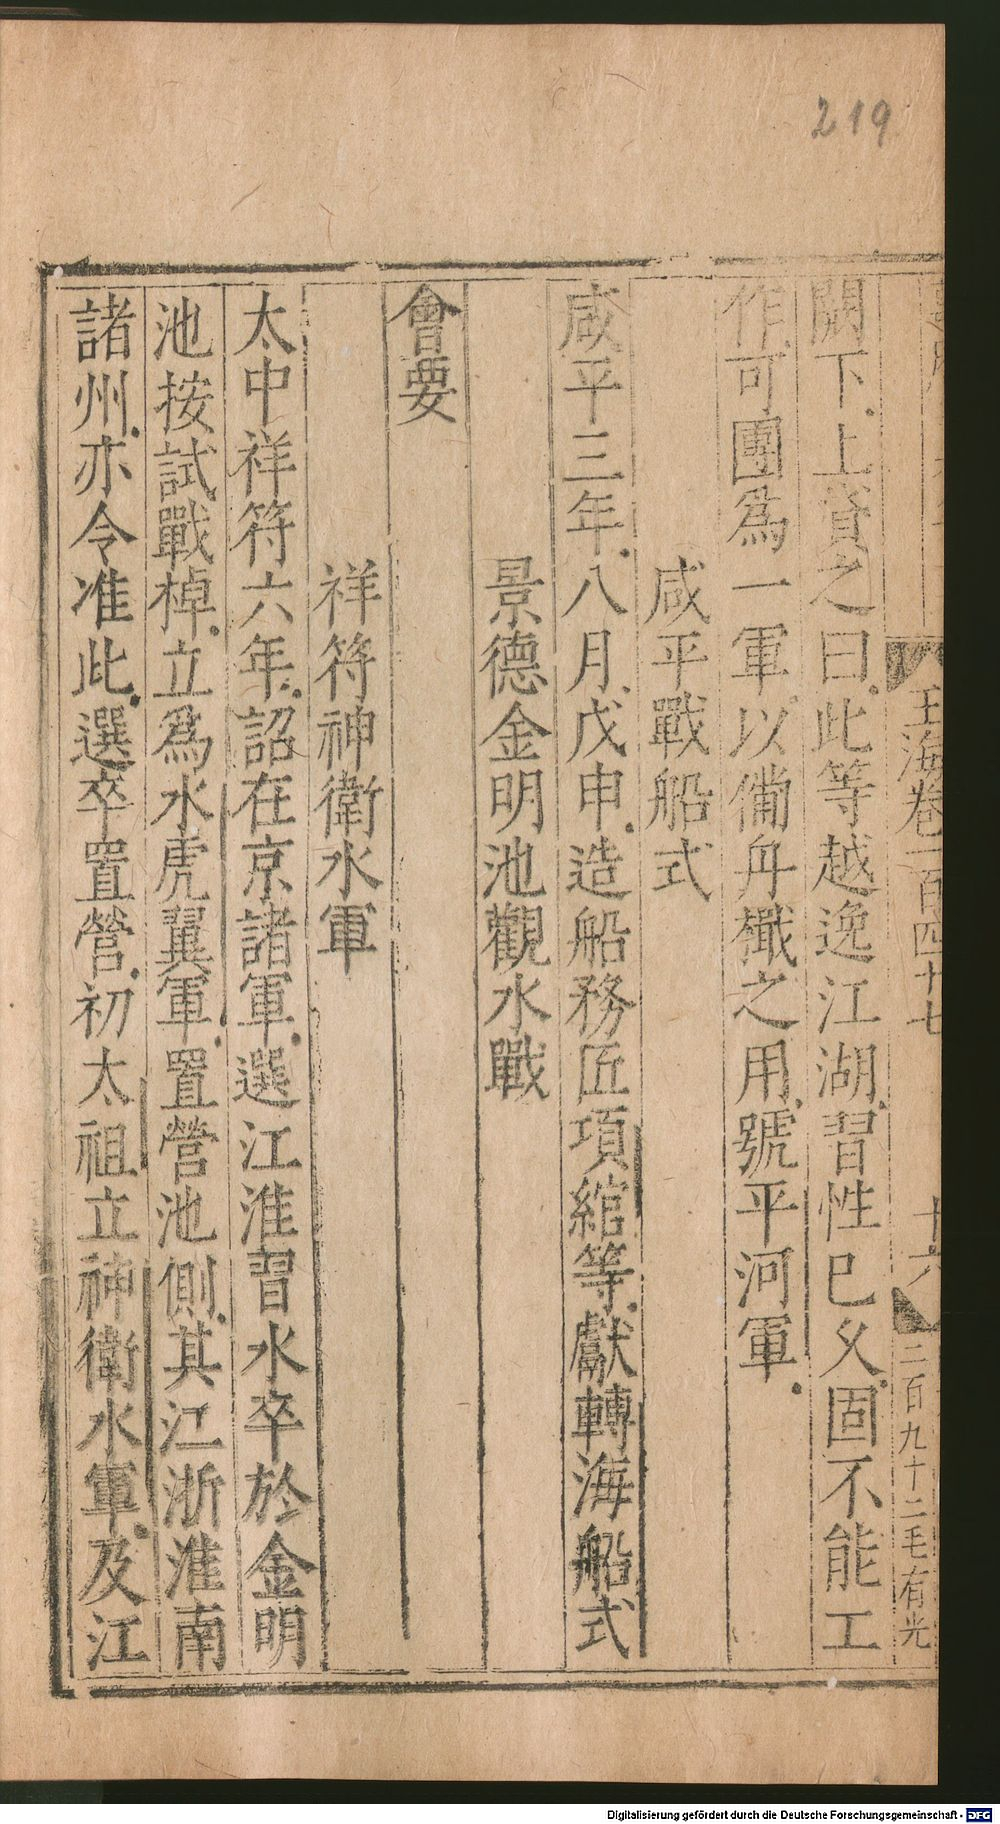 219
玉海卷一百四十七
十六
二百九十二毛有光
闕下上貰之曰此等越逸江湖習性已久固不能工
作可團為一軍以備舟檝之用號平河軍
咸平戰船式
咸平三年八月戊申造船務匠項綰等獻轉海船式
景德金明池觀水戰
會要
祥符神衛水軍
太中祥符六年詔在京諸軍選江淮習水卒於金明
池按試戰棹立為水虎翼軍置營池側其江浙淮南
諸州亦令准此選卒置營初太祖立神衛水軍及江
Digitalisierung gefördert durch die Deutsche Forschungsgemeinschaft - DFG